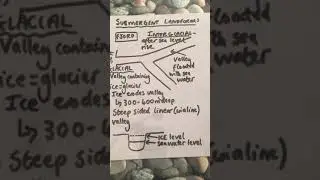 SUBMERGENT LANDFORMS
FJORD
INTERGLACIAL
-after sea level
rise.
GLACIAL
Valley containing
ice=glacier
Valley
flooded
with sea
water
GLACIAL
Valley containing
ice=glacier
Ice erodes valley
↳300-400m deep
Steep sided linear
valley
Ice erodes
↳ 300-
Steep sid
ICE level
sea water level